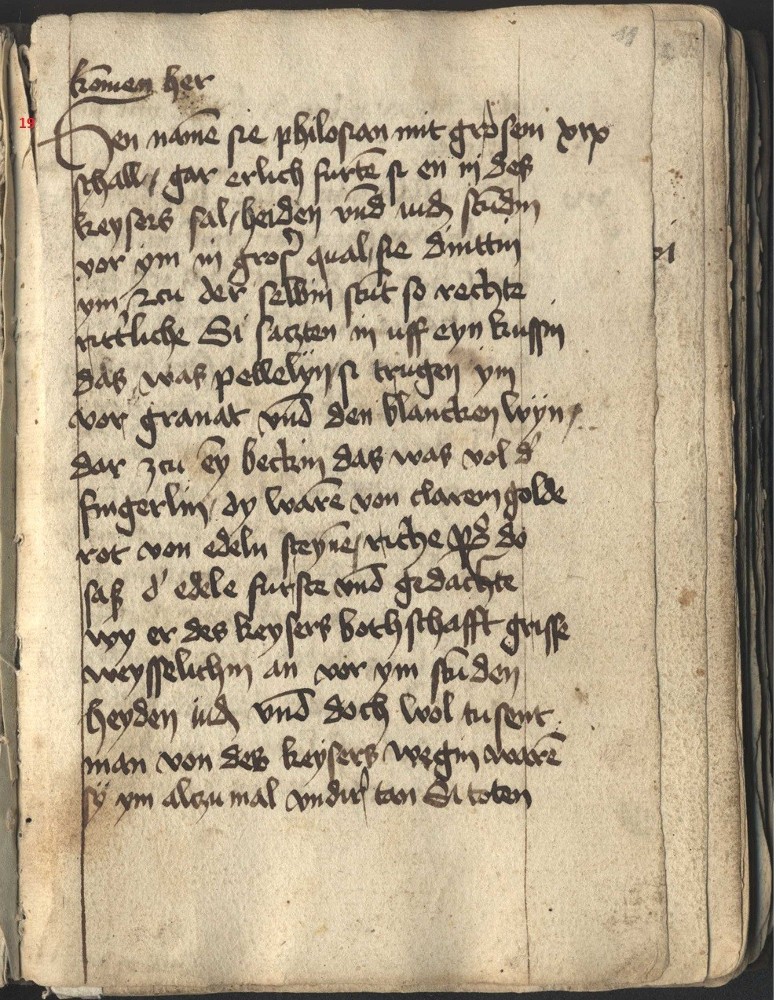 komen her
Den namē sie philosian mit grosem xix
schall / gar erlich furtē si en in des
keysers sal / heiden vnd iudn studin
vor ym in grosr qual / sie dinttin
ym zcu der selbin stut so rechte
rittirliche Si saczten in uff eyn kussin
das was pellelyn / si trugen ym
vor granat vnd den blancken wyn /
dar zcu ey beckin das was vol dr
fingerlin / dy warē von clarem golde
rot von edeln steynē / riche do
saß dr edele furste vnd gedachte
wy er des keysers bothschafft grisse
weysselichin an vor ym studen
heyden iudn vnd doch wol tusent
man von des keysers wegin warē
sy ym alczu mal vndir tan Si toten
19